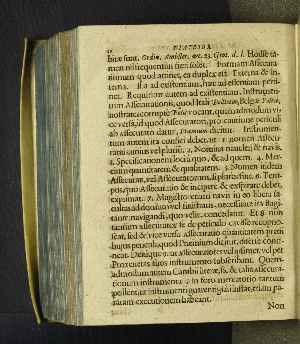 DIATRIBA
bitæ sunt. Ordin. Amstel. art. 23. Grot. d. l. Hodie ta-
men nil frequentius fieri solet. Formam Assecura-
tionum quod attinet, ea duplex est: Externa & in-
terna. Illa ad existentiam, hæc ad essentiam perti-
net. Requiritur autem ad existentiam, Instrumen-
tum Assecurationis, quod Itali Polizzam, Belgæ Police,
nostrates corruptè Polis vocant, quemadmodum vi-
ce versa, id quod Assecuratori, pro cautione periculi
ab Assecurato datur, Præmium dicitur. Instrumen-
tum autem ita confici debet, ut 1. nomen Assecu-
rati unius vel plurium, 2. Nomina nautæ, & navis.
3. Specificationem loci à quo, & ad quem. 4. Mer-
cium quantitatem & qualitatem. 5. Nomen itidem
Assecuratoris, vel Assecuratorum, si plures sint. 6. Tem-
pus, quo Assecuratio & incipere & exspirare debet,
exprimat. 7. Magistro etiam navis in eo libera fa-
cultas ad dextrum vel sinistrum, necessitate ita flagi-
tante, navigandi, quo velit, concedatur. Et 8. non
tantum assecurator se de periculo cavisse recogno-
scat, sed & vice versa Assecuratio quantitatem pretii
hujus periculi, quod Præmium dicitur, diserte conti-
neat. Denique 9. ut Assecuratores vel ipsimet vel per
Proxenetas suos instrumento subscribant. Quem-
admodum autem Cambii literæ, sic & talia Assecura-
tionum instrumenta in foro mercatorio tantum
pollent, ut instrumenti guarentigiati instar, etiam pa-
ratam executionem habeant.
Non